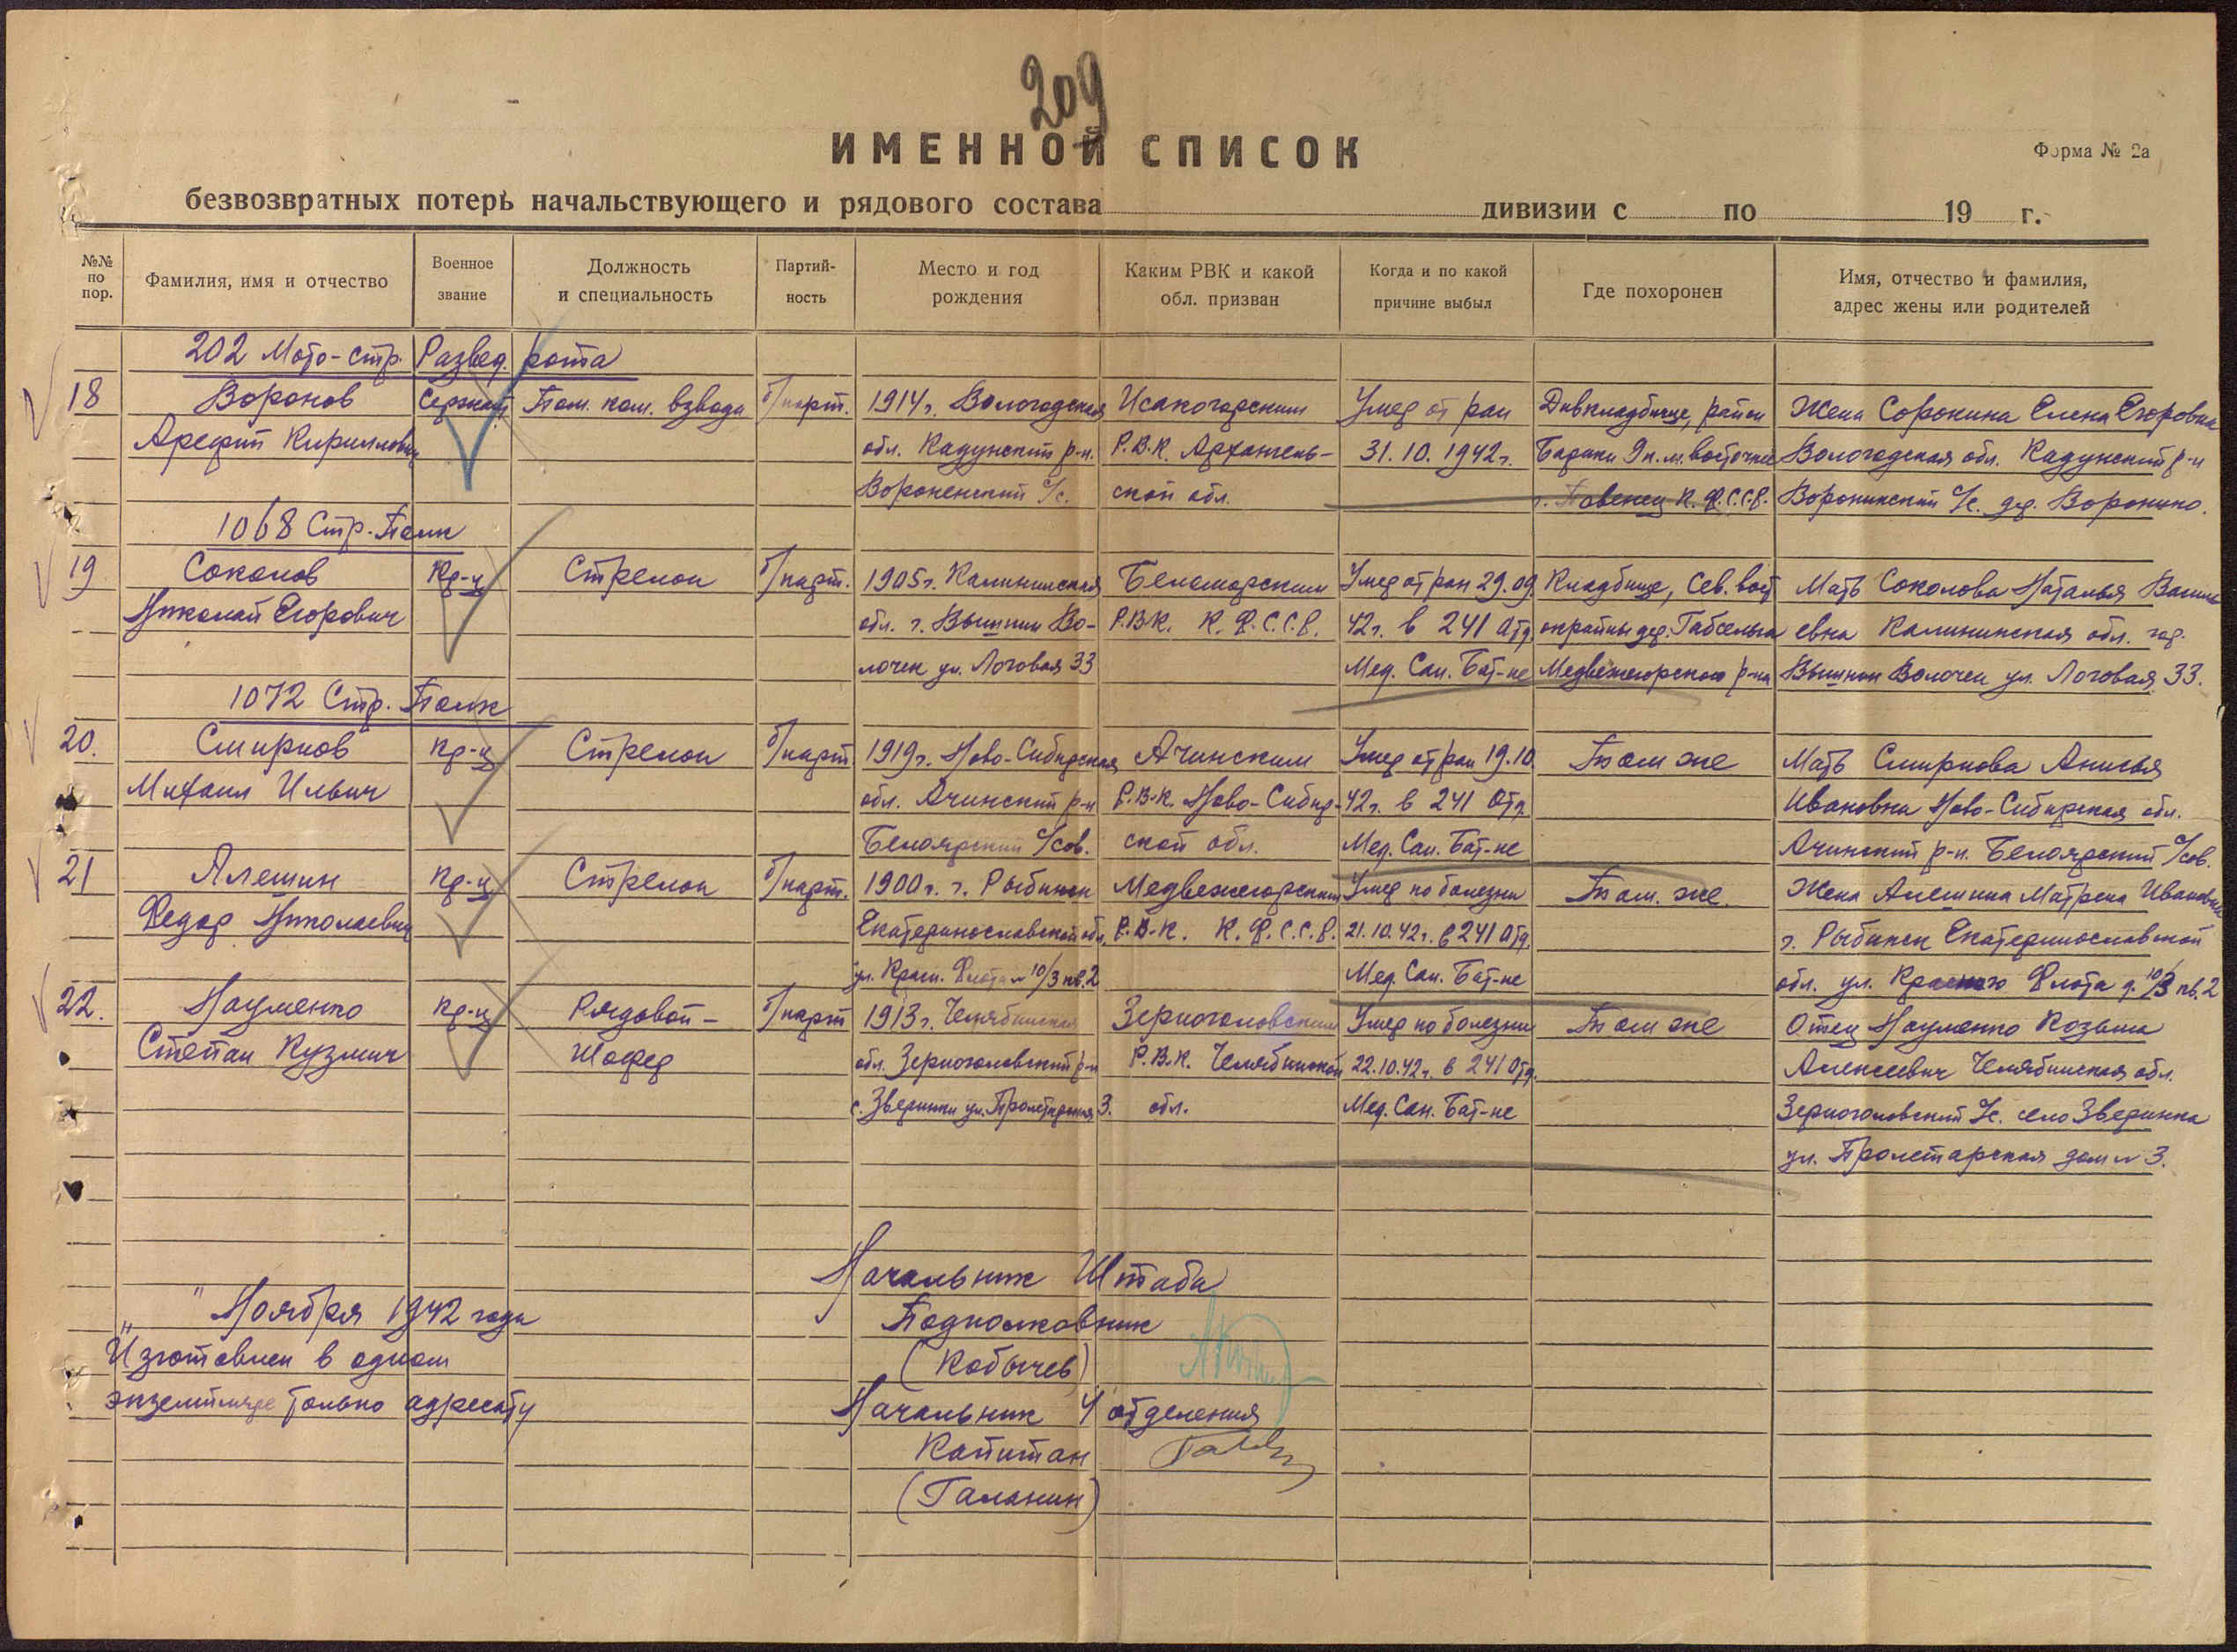 209
ИМЕННОЙ СПИСОК
Форма № 2а
безвозвратных потерь начальствующего и рядового состава дивизии с по 19 г.
№№ по пор.
Фамилия, имя и отчество
Военное звание
Должность и специальность
Партий-ность
Место и год рождения
Каким РВК и какой обл. призван
Когда и по какой причине выбыл
Где похоронен
Имя, отчество и фамилия, адрес жены или родителей
202 Мото-стр. Развед. рота
18 Воронов Сержант Пом. ком. взвода б/парт. 1914 г. Вологодская Исакогорским Умер от ран Дивкладбище, район Жена Сорокина Елена Егоровна
Арефий Кириллович обл. Кадуйский р-н. Р.В.К. Архангель- 31.10.1942 г. 9 к.м. восточнее Вологодская обл. Кадуйский р-н
Вороненский с/с. ской обл. г. Повенец К.Ф.С.С.Р. Воронинский с/с. дер. Воронино.
1068 Стр. Полк
19 Соколов Кр-ц Стрелок б/парт. 1905 г. Калининская Беломорским Умер от ран 29.09. Кладбище, Сев. вост Мать Соколова Наталья Василь
Николай Егорович обл. г. Вышний Во- Р.В.К. К.Ф.С.С.Р. 42 г. в 241 Отд. окраины дер. Габсельга евна Калининская обл. гор.
лочек ул. Логовая 33 Мед. Сан. Бат-не Медвежегорского р-на Вышний Волочек ул. Логовая 33.
1072 Стр. Полк
20. Смирнов Кр-ц Стрелок б/парт 1919 г. Ново-Сибирская Ачинским Умер от ран 19.10. Там же Мать Смирнова Анисья
Михаил Ильич обл. Ачинский р-н Р.В.К. Ново-Сибир- 42 г. в 241 Отд. Ивановна Ново-Сибирская обл.
Белоярский с/сов. ской обл. Мед. Сан. Бат-не Ачинский р-н. Белоярский с/сов.
21 Алешин Кр-ц Стрелок б/парт. 1900 г. г. Рыбинск Медвежегорским Умер по болезни Там. же. Жена Алешина Матрена Ивановна
Федор Николаевич Екатеринославской обл. Р.В.К. К.Ф.С.С.Р. 21.10.42 г. в 241 Отд. г. Рыбинск Екатеринославской
ул. Красн. Флота № 10/3 кв. 2 Мед. Сан. Бат-не обл. ул. Красного Флота д. 10/3 кв. 2
22. Науменко Кр-ц Рядовой- б/парт 1913 г. Челябинская Зерноголовским Умер по болезни Там же Отец Науменко Козьма
Степан Кузмич Шофер обл. Зерноголовский р-н Р.В.К. Челябинской 22.10.42 г. в 241 Отд. Алексеевич Челябинская обл.
с. Зверинки ул. Пролетарская 3. обл. Мед. Сан. Бат-не Зерноголовский с/с. село Зверинка
ул. Пролетарская дом № 3.
Начальник Штаба
" " Ноября 1942 года Подполковник
Изготовлен в одном (Кобычев)
экземпляре только адресату Начальник 4 отделения
Капитан
(Галанин)